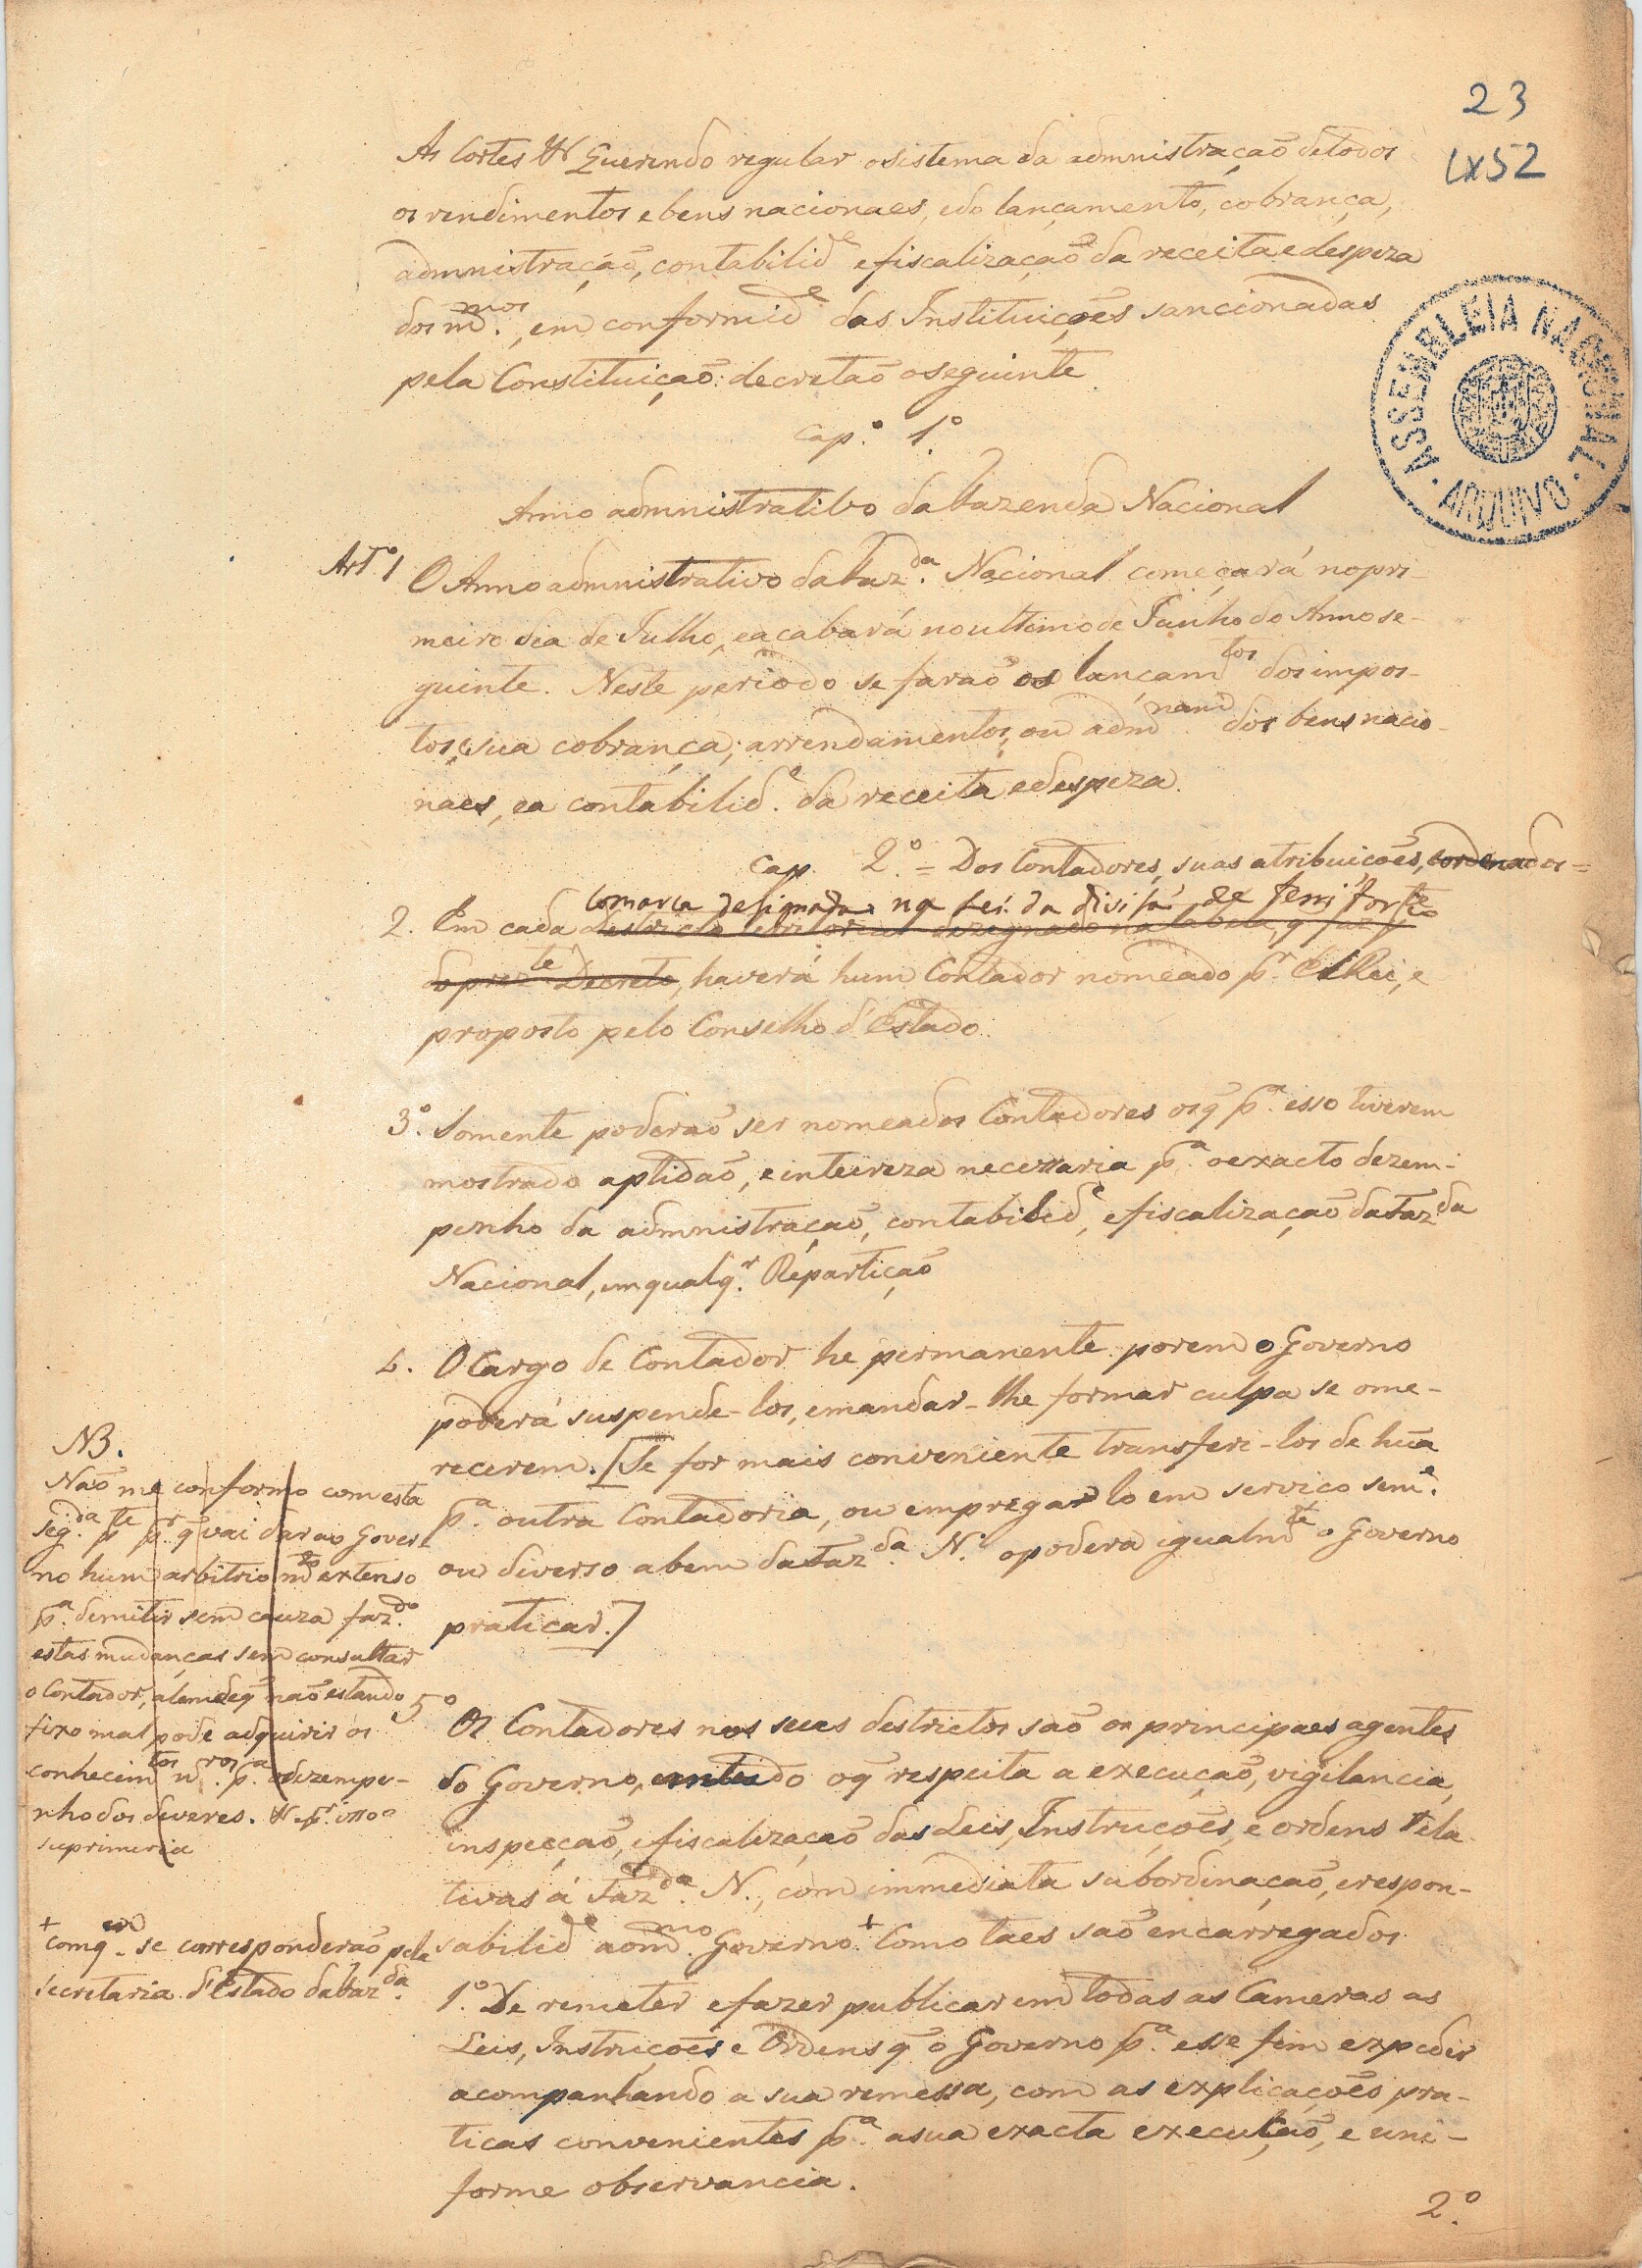 23
Cx52
As Cortes &c Querendo regular o sistema da admnistração de todos
os rendimentos e bens nacionaes, e do lançamento, cobrança,
admnistração, contabilid.e e fiscalização da receita e despeza
dos m.mos, em conformid.e das Instituições sancionadas
pela Constituição: decretão o seguinte.
Cap.o 1.o
Anno admnistrativo da Fazenda Nacional
Art.o 1 O Anno admnistrativo da Faz.da Nacional começará no pri-
meiro dia de Julho, e acabará no ultimo de Junho do Anno se-
guinte. Neste periodo se farão os lançam.tos dos impos-
tos, sua cobrança; arrendamentos, ou adm dos bens nacio-
naes, e a contabilid.e da receita e despeza.
Cap. 2.o = Dos Contadores, suas atribuicões, e ordenados =
comarca designada na Lei da divisão de territorio
2. Em cada destricto territorial dezegnado na tabela, q faz p.te
do prez.te Decreto, haverá hum Contador nomeado p.r ElRei, e
proposto pelo Conselho d'Estado.
3.o Somente poderão ser nomeados Contadores os q̃ p.a esso tiverem
mostrado aptidão, e inteireza necessaria p.a o exacto dezem-
penho da admnistração, contabilid.e, e fiscalização da Faz.da
Nacional, em qualq.r Repartição
4. O Cargo de Contador he permanente porem o Governo
poderá suspende-los, e mandar-lhe formar culpa se o me-
recerem. [Se for mais conveniente transferi-los de hũa
p.a outra Contadoria, ou empregar lo em servico sem.e
ou diverso a bem da Faz.da N. o poderá igualm.te o Governo
praticar.]
NB.
Não me conformo com esta
seg.da p.te p.r q̃ vai dar ao Gover
no hum arbitrio m.to extenso
p.a demitir sem cauza faz.do
estas mudanças sem consultar
o Contador, alem de q̃ não estando
fixo mal pode adquirir os
conhecim.tos n.ros p.a o dezempe-
nho dos deveres. &c p.r isso o
suprimeria
5.o Os Contadores nos seus destrictos são os principaes agentes
do Governo, em tudo o q̃ respeita a execução, vigilancia,
inspecção, e fiscalização das Leis, Instruções, e ordens rela-
tivas á Faz.da N., com immediata subordinação, e respon-
sabilid.e ao m.mo Governo + Como taes são encarregados
+ com q.m se corresponderão pela
secretaria d'Estado da Faz.da
1.o De remeter e fazer publicar em todas as Cameras as
Leis, Instruções e Ordens q̃ o Governo p.a esse fim expedir
acompanhando a sua remessa, com as explicações pra-
ticas convenientes p.a a sua exacta execução, e uni-
forme observancia.
2.o
ASSEMBLEIA NACIONAL · ARQUIVO ·